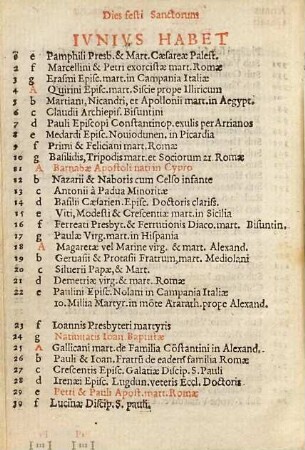 Dies festi Sanctorum
IVNIVS HABET
e Pamphili Presb. & Mart. Cæsareæ Palest.
2 f Marcellini & Petri exorcistæ mart. Romæ
3 g Erasmi Episc. mart. in Campania Italiæ
4 A Quirini Episc. mart. Siscie prope Illiricum
5 b Martiani, Nicandri, et Apollonii mart. in Aegypt.
6 c Claudii Archiepisf. Bisuntini
7 d Pauli Episcopi Constantinop. exulis per Arrianos
8 e Medardi Episc. Nouiodunen. in Picardia
9 f Primi & Feliciani mart. Romæ
10 g Basilidis, Tripodis mart. et Sociorum 21. Romæ
11 A Barnabæ Apostoli nati in Cypro
12 b Nazarii & Naboris cum Celso infante
13 c Antonii à Padua Minoritæ
14 d Basilii Cæsarien. Episc. Doctoris clariss.
15 e Viti, Modesti & Crescentiæ mart. in Sicilia
16 f Ferreati Presbyt. & Ferrutionis Diaco. mart. Bisuntin.
17 g Paulæ Virg. mart. in Hispania
18 A Magaretæ vel Marine virg. & mart. Alexand.
19 b Geruasii & Protasii Fratrum, mart. Mediolani
20 c Siluerii Papæ, & Mart.
21 d Demetriæ virg. & mart. Romæ
22 e Paulini Episc. Nolam in Campania Italiæ
10. Millia Martyr. in mõte Ararath. prope Alexand.
23 f Ioannis Presbyteri martyris
24 g Natiuitatis Ioan Baptistæ
25 A Gallicani mart. de Familia Cõstantini in Alexand.
26 b Pauli & Ioan. Fratrũ de eadem familia Romæ
27 c Crescentis Episc. Galatiæ Discip. S. Pauli
28 d Irenæi Epis. Lugdun. veteris Eccl. Doctoris
29 e Petri & Pauli Apost. mart. Romæ
f Lucinæ Discip. S. pauli.